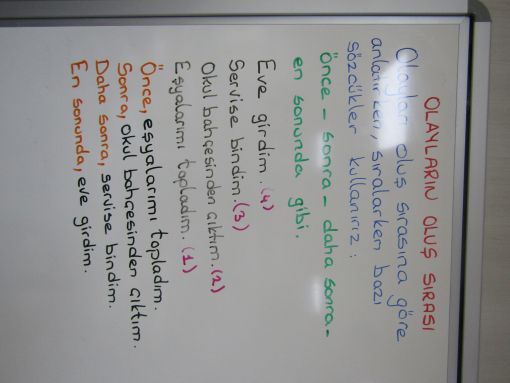 OLAYLARIN OLUŞ SIRASI
Olayları oluş sırasına göre
anlatırken, sıralarken bazı
sözcükler kullanırız:
Önce - sonra - daha sonra -
en sonunda gibi.
Eve girdim. (4)
Servise bindim. (3)
Okul bahçesinden çıktım. (2)
Eşyalarımı topladım. (1)
Önce, eşyalarımı topladım.
Sonra, okul bahçesinden çıktım.
Daha sonra, servise bindim.
En sonunda, eve girdim.